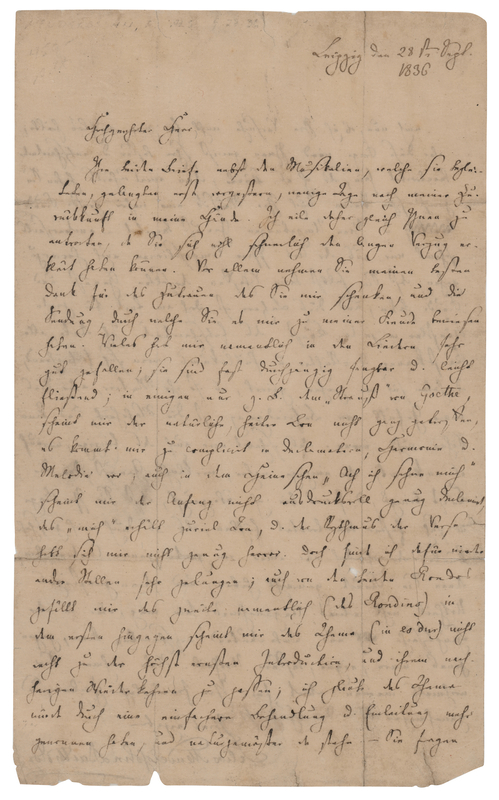 Leipzig den 28 ten Sept.
1836
Hochgeehrter Herr
Ihre beiden Briefe nebst den Musikalien, welche sie beglei-
teten, gelangten erst vorgestern, wenige Tage nach meiner Zu-
rückkunft in meine Hände. Ich eile daher gleich Ihnen zu
antworten, da Sie sich wohl schwerlich den langen Verzug er-
klärt haben können. Vor allem nehmen Sie meinen besten
Dank für das Zutrauen das Sie mir schenken, und die
Sendung, durch welche Sie es mir zu meiner Freude bewiesen
haben. Vieles hat mir namentlich in den Liedern sehr
gut gefallen; sie sind fast durchgängig sangbar u. leicht
fließend; in einigen nur z. B. dem „Strauß" von Goethe,
scheint mir der natürliche, heitre Ton nicht ganz getroffen,
es kommt mir zu complicirt in Declamation, Harmonie u.
Melodie vor; auch in dem Heineschen „Ach ich sehne mich"
scheint mir der Anfang nicht ausdrucksvoll genug declamirt
das „mich" erhält zuviel Ton, u. der Rythmus der Verse
hebt sich mir nicht genug hervor. Doch find ich dafür wieder
andre Stellen sehr gelungen; auch von den beiden Rondos
gefällt mir das zweite namentlich (das Rondino) in
dem ersten hingegen scheint mir das Thema (in es dur) nicht
recht zu der höchst ernsten Introduction, und ihrem nach-
herigen Wiederkehren zu passen; ich glaube das Thema
würde durch eine einfachere Behandlung u. Einleitung mehr
gewonnen haben, und naturgemäßer da stehn – Sie fragen